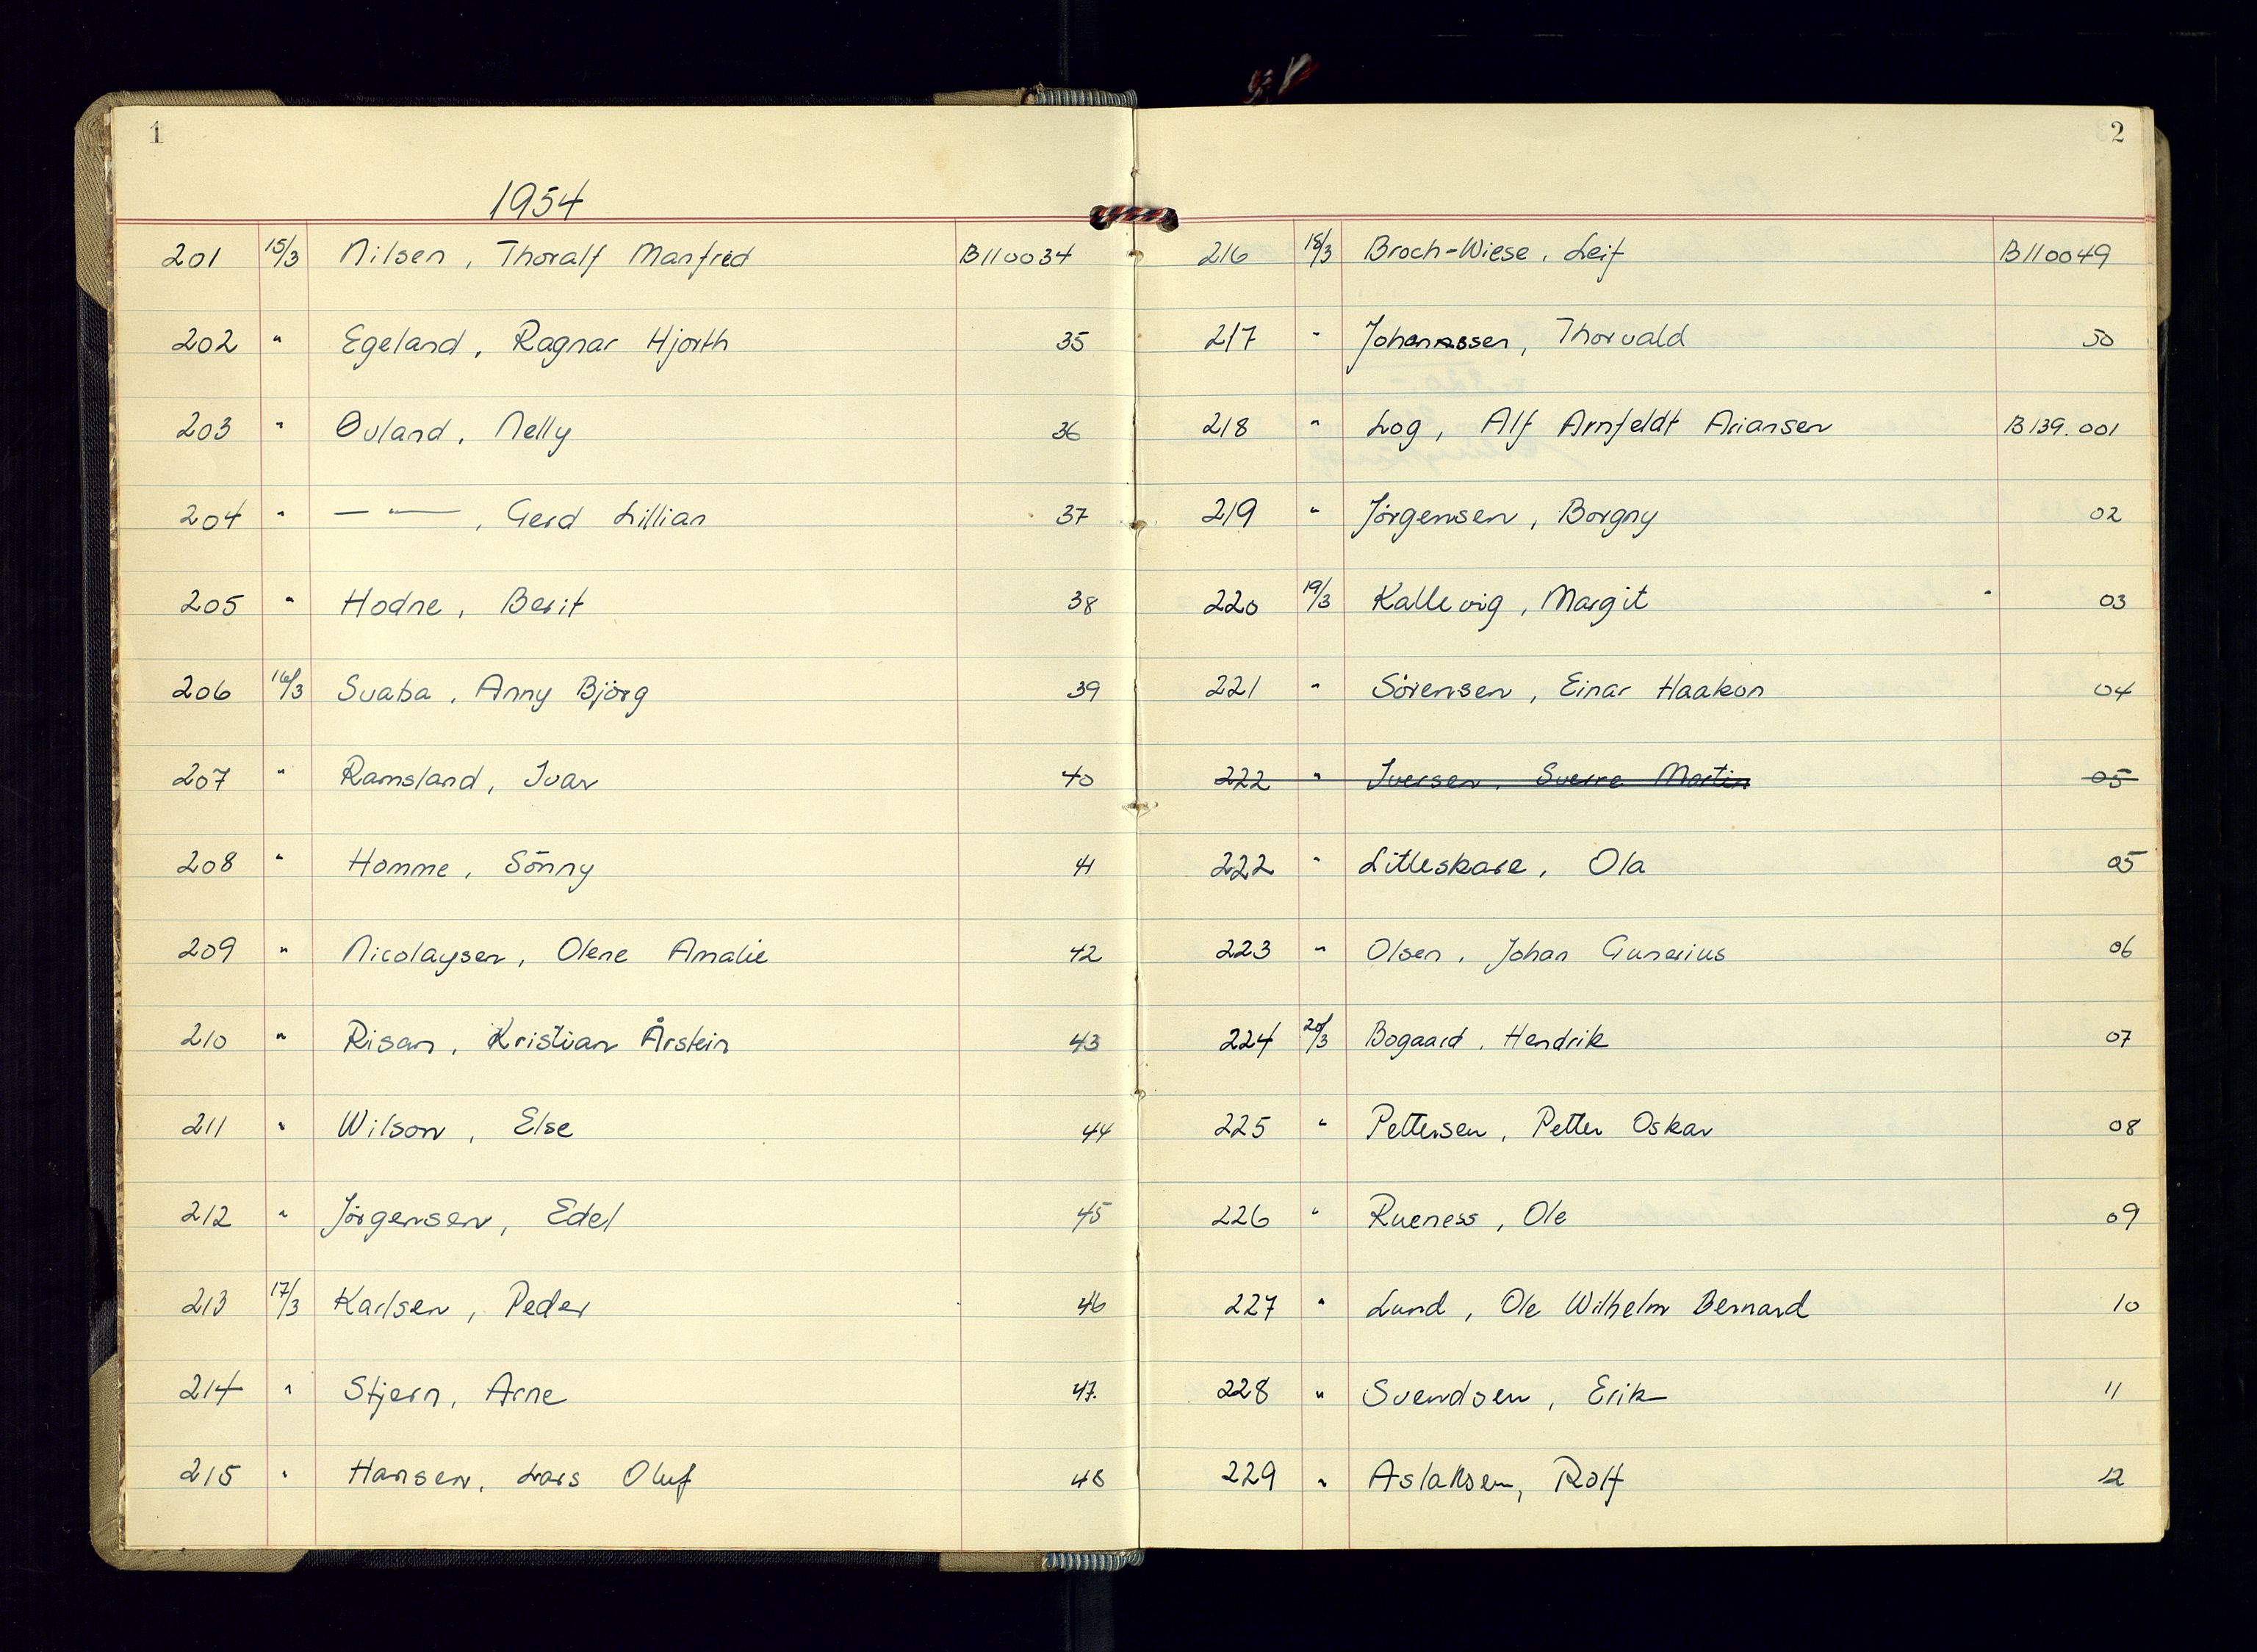 1
1954
201 15/3 Nilsen, Thoralf Manfred B110034
202 " Egeland, Ragnar Hjorth 35
203 " Øvland, Nelly 36
204 " — " —, Gerd Lillian 37
205 " Hodne, Berit 38
206 16/3 Svaba, Anny Björg 39
207 " Ramsland, Ivar 40
208 " Homme, Sönny 41
209 " Nicolaysen, Olene Amalie 42
210 " Risan, Kristian Årstein 43
211 " Wilson, Else 44
212 " Jörgensen, Edel 45
213 17/3 Karlsen, Peder 46
214 " Stjern, Arne 47.
215 " Hansen, Lars Oluf 48
2
216 18/3 Broch-Wiese, Leif B110049
217 " Johannssen, Thorvald 50
218 " Log, Alf Arnfeldt Ariansen B139.001
219 " Jörgensen, Borgny 02
220 19/3 Kallevig, Margit 03
221 " Sörensen, Einar Haakon 04
222 " Iversen, Sverre Martin 05
222 " Litleskare, Ola 05
223 " Olsen, Johan Gunerius 06
224 20/3 Bogaard, Hendrik 07
225 " Pettersen, Petter Oskar 08
226 " Rueness, Ole 09
227 " Lund, Ole Wilhelm Bernard 10
228 " Svendsen, Erik 11
229 " Aslaksen, Rolf 12